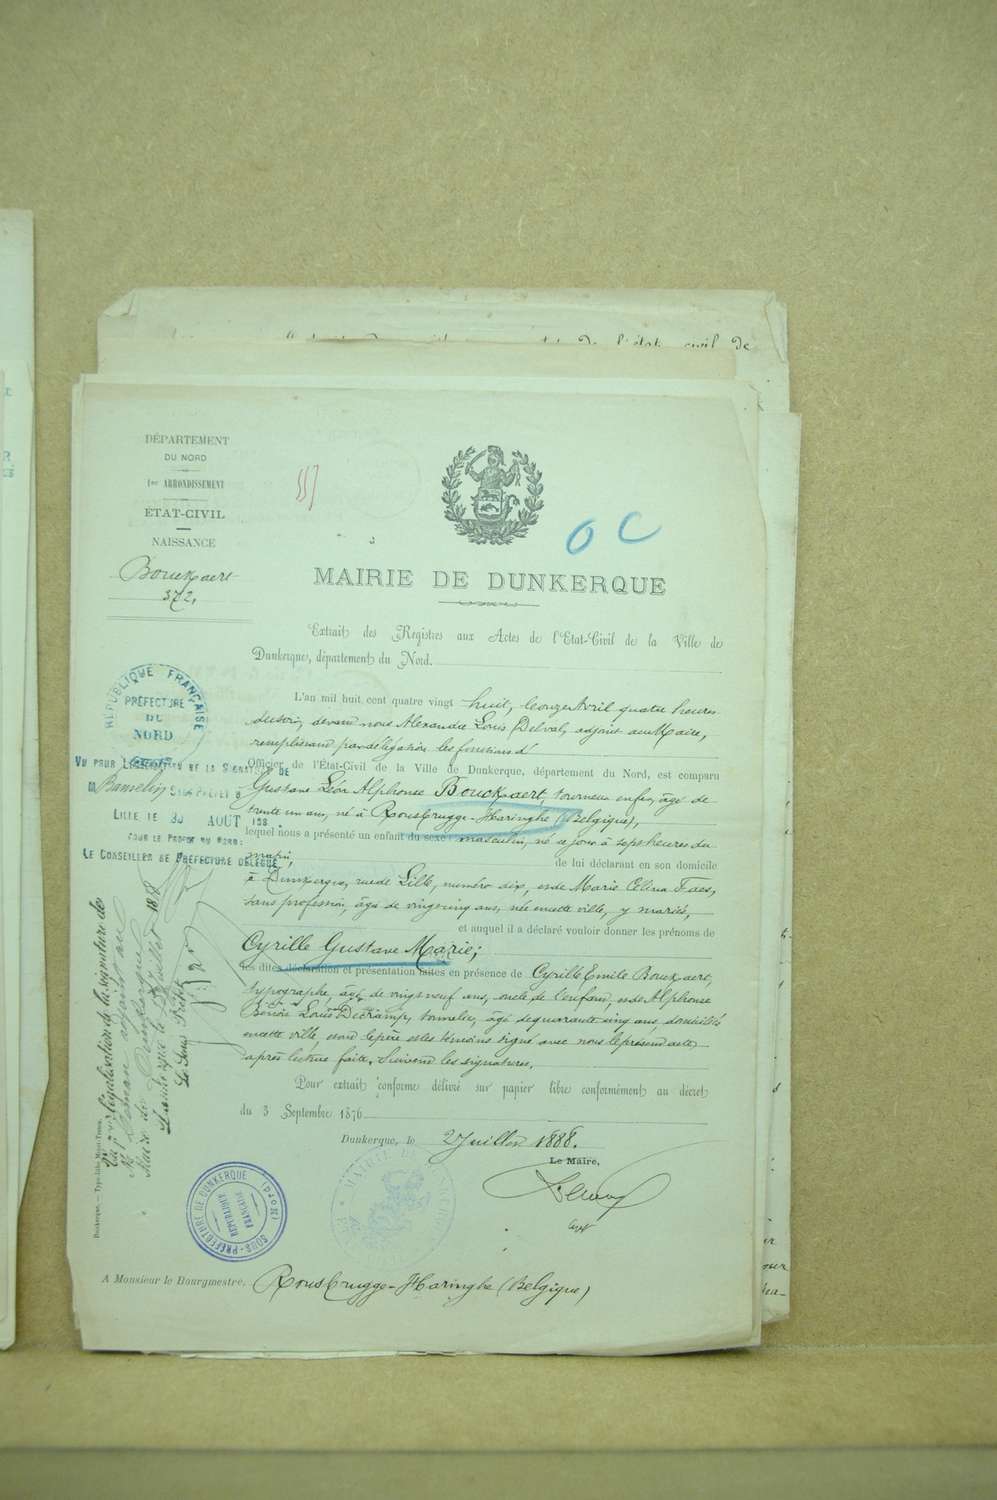 de l'état civil de
DÉPARTEMENT
DU NORD
1er ARRONDISSEMENT
ÉTAT-CIVIL
NAISSANCE
Bouckaert
372.
557
O C
MAIRIE DE DUNKERQUE
Extrait des Registres aux Actes de l'Etat-Civil de la Ville de
Dunkerque, département du Nord.
L'an mil huit cent quatre vingt huit, le onze Avril quatre heures
du soir, devant nous Alexandre Louis Delval, adjoint au Maire,
remplissant par délégation les fonctions d'
Officier de l'État-Civil de la Ville de Dunkerque, département du Nord, est comparu
Gustave Léon Alphonse Bouckaert, tourneur en fer, âgé de
trente un ans, né à Rousbrugge-Haringhe (Belgique),
lequel nous a présenté un enfant du sexe masculin, né ce jour à sept heures du
matin, de lui déclarant en son domicile
à Dunkerque, rue de Lille, numéro dix, et de Marie Célina Faes,
sans profession, âgée de vingt cinq ans, née en cette ville, y mariés,
et auquel il a déclaré vouloir donner les prénoms de
Cyrille Gustave Marie;
les dites déclaration et présentation faites en présence de Cyrille Emile Bouckaert,
typographe, âgé de vingt neuf ans, oncle de l'enfant, et de Alphonse
Benoit Louis Decramp, tonnelier, âgé de quarante cinq ans, domiciliés
en cette ville, et ont le père et les témoins signé avec nous le présent acte
après lecture faite. Suivent les signatures.
Pour extrait conforme délivré sur papier libre conformément au décret
du 3 Septembre 1876
Dunkerque, le 2 Juillet 1888.
Le Maire,
A Monsieur le Bourgmestre, Rousbrugge-Haringhe (Belgique)
RÉPUBLIQUE FRANÇAISE
PRÉFECTURE
DU
NORD
VU POUR LÉGALISATION DE LA SIGNATURE DE
M. Bamelin SOUS-PRÉFET
LILLE LE 30 AOUT 188
POUR LE PRÉFET DU NORD:
LE CONSEILLER DE PRÉFECTURE DÉLÉGUÉ
Vu pour légalisation de la signature de
adjoint au
Maire de Dunkerque
Dunkerque le Juillet 188
Le Sous Préfet
Dunkerque. — Typo-litho
SOUS-PRÉFECTURE DE DUNKERQUE (NORD)
RÉPUBLIQUE
FRANÇAISE
MAIRIE DE DUNKERQUE